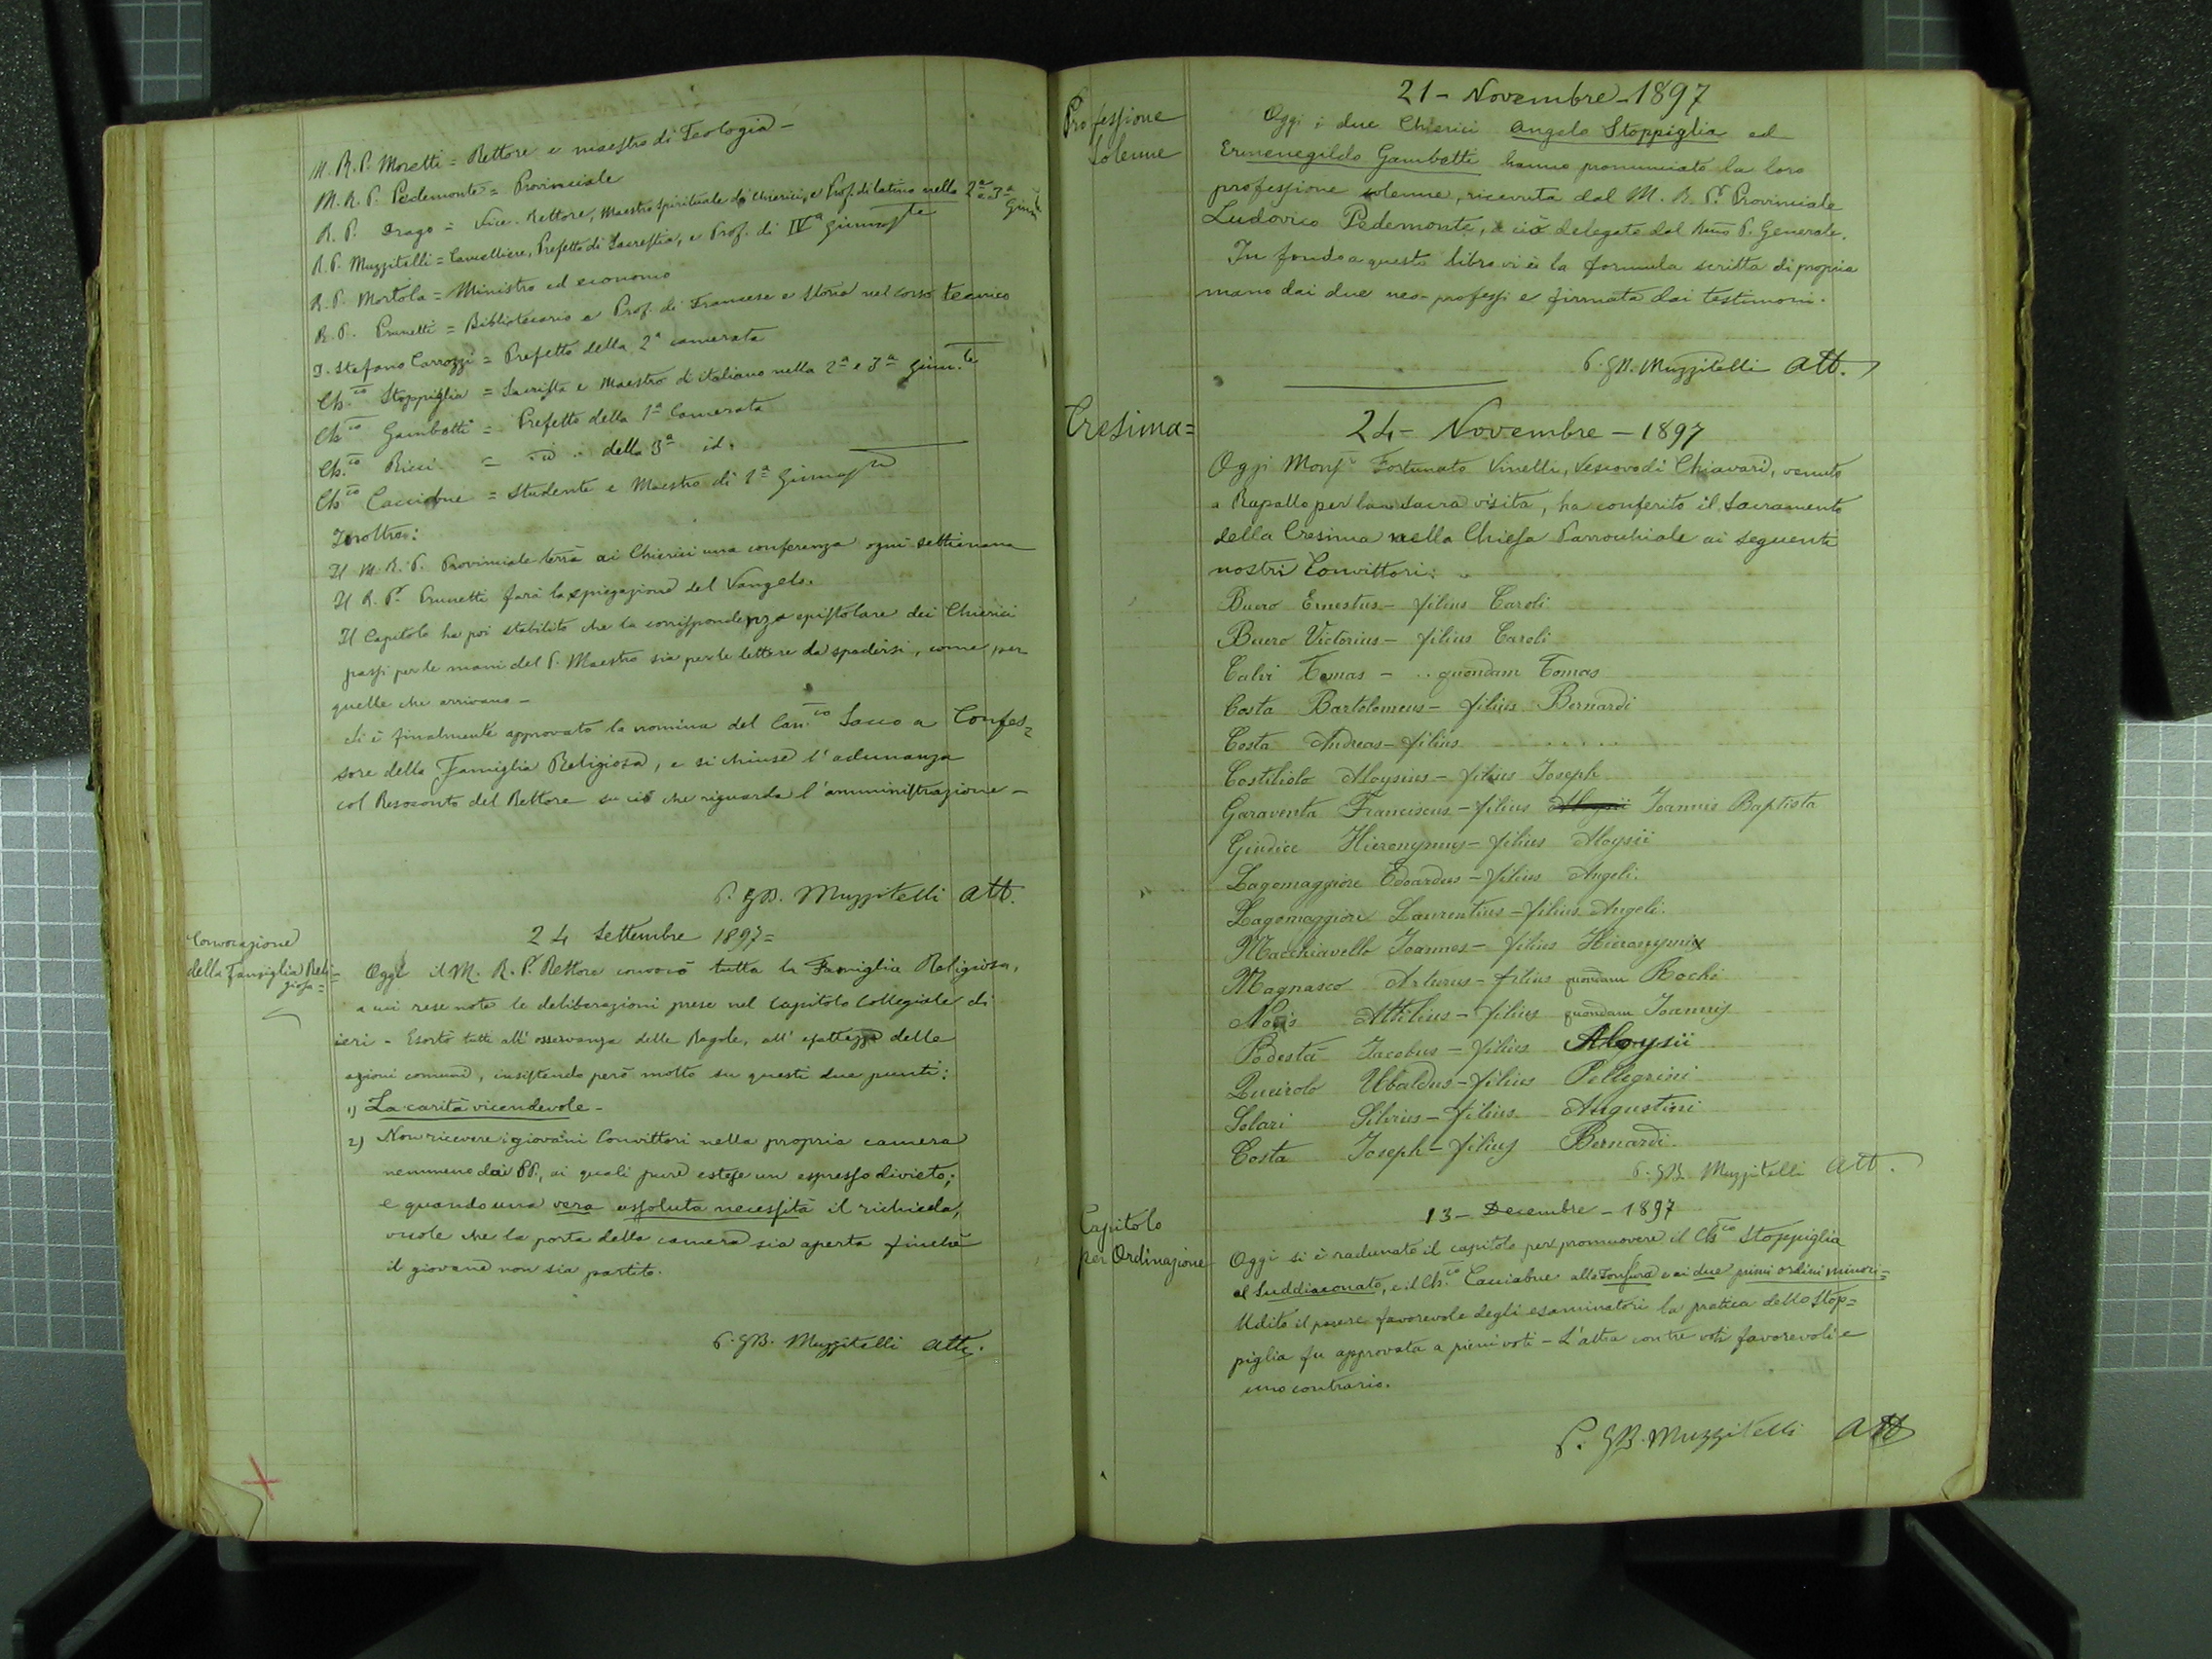 M. R. P. Moretti = Rettore e maestro di Teologia -
M. R. P. Pedemonte = Provinciale
R. P. Drago = Vice-Rettore, Maestro spirituale di Chierici, e Prof. di latino nella 2ª e 3ª Ginn.le
R. P. Muzzitelli = Cancelliere, Prefetto di Sacrestia, e Prof. di IVª Ginnas.le
R. P. Mortola = Ministro ed economo
R. P. Prunetti = Bibliotecario e Prof. di Francese e Storia nel corso tecnico
D. Stefano Carrozzi = Prefetto della 2ª camerata
Ch.co Stoppiglia = Sacrista e Maestro d'italiano nella 2ª e 3ª Ginn.le
Ch.co Gambetti = Prefetto della 1ª Camerata
Ch.co Ricci = id. della 3ª id.
Ch.co Cacciabue = Studente e Maestro di 1ª Ginnas.le
Inoltre:
Il M. R. P. Provinciale terrà ai Chierici una conferenza ogni settimana
Il R. P. Prunetti farà la spiegazione del Vangelo.
Il Capitolo ha poi stabilito che la corrispondenza epistolare dei Chierici
passi per le mani del P. Maestro sia per le lettere da spedirsi, come per
quelle che arrivano -
Si è finalmente approvato la nomina del Can.co Sacco a Confes=
sore della Famiglia Religiosa, e si chiuse l'adunanza
col Resoconto del Rettore su ciò che riguarda l'amministrazione -
P. GB. Muzzitelli Att.
24 Settembre 1897 =
Convocazione
della Famiglia Reli=
giosa =
Oggi il M. R. P. Rettore convocò tutta la Famiglia Religiosa,
a cui rese note le deliberazioni prese nel Capitolo Collegiale di
ieri - Esortò tutti all'osservanza delle Regole, all'esattezza delle
azioni comuni, insistendo però molto su questi due punti:
1) La carità vicendevole -
2) Non ricevere i giovani Convittori nella propria camera
nemmeno dai PP., ai quali pure estese un espresso divieto;
e quando una vera assoluta necessità il richieda,
vuole che la porta della camera sia aperta finchè
il giovane non sia partito.
P. GB. Muzzitelli Att.
21 - Novembre - 1897
Professione
Solenne
Oggi i due Chierici Angelo Stoppiglia ed
Ermenegildo Gambetti hanno pronunciato la loro
professione solenne, ricevuta dal M. R. P. Provinciale
Ludovico Pedemonte, a ciò delegato dal Rmo P. Generale.
In fondo a questo libro vi è la formula scritta di propria
mano dai due neo-professi e firmata dai testimoni.
P. GB. Muzzitelli Att.
Cresima =
24 - Novembre - 1897
Oggi Monsr Fortunato Vinelli, Vescovo di Chiavari, venuto
a Rapallo per la sacra visita, ha conferito il Sacramento
della Cresima nella Chiesa Parrochiale ai seguenti
nostri Convittori:
Buero Ernestus - filius Caroli
Buero Victorius - filius Caroli
Calvi Tomas - .. quondam Tomas
Costa Bartolomeus - filius Bernardi
Costa Andreas - filius . . . . . .
Costiliolo Aloysius - filius Joseph
Garaventa Franciscus - filius Aloysii Joannis Baptista
Giudice Hieronymus - filius Aloysii
Lagomaggiore Edoardus - filius Angeli.
Lagomaggiore Laurentius - filius Angeli.
Macchiavello Joannes - filius Hieronymi
Magnasco Arturus - filius quondam Rochi
Attilius - filius quondam Joannis
Podestà Jacobus - filius Aloysii
Queirolo Ubaldus - filius Pellegrini
Solari Silvius - filius Augustini
Costa Joseph - filius Bernardi
P. GB. Muzzitelli Att.
13 - Decembre - 1897
Capitolo
per Ordinazione
Oggi si è radunato il capitolo per promuovere il Ch.co Stoppiglia
al Suddiaconato, e il Ch.co Cacciabue alla Tonsura e ai due primi ordini minori =
Udito il parere favorevole degli esaminatori la pratica dello Stop=
piglia fu approvata a pieni voti - L'altra con tre voti favorevoli e
uno contrario.
P. GB. Muzzitelli Att